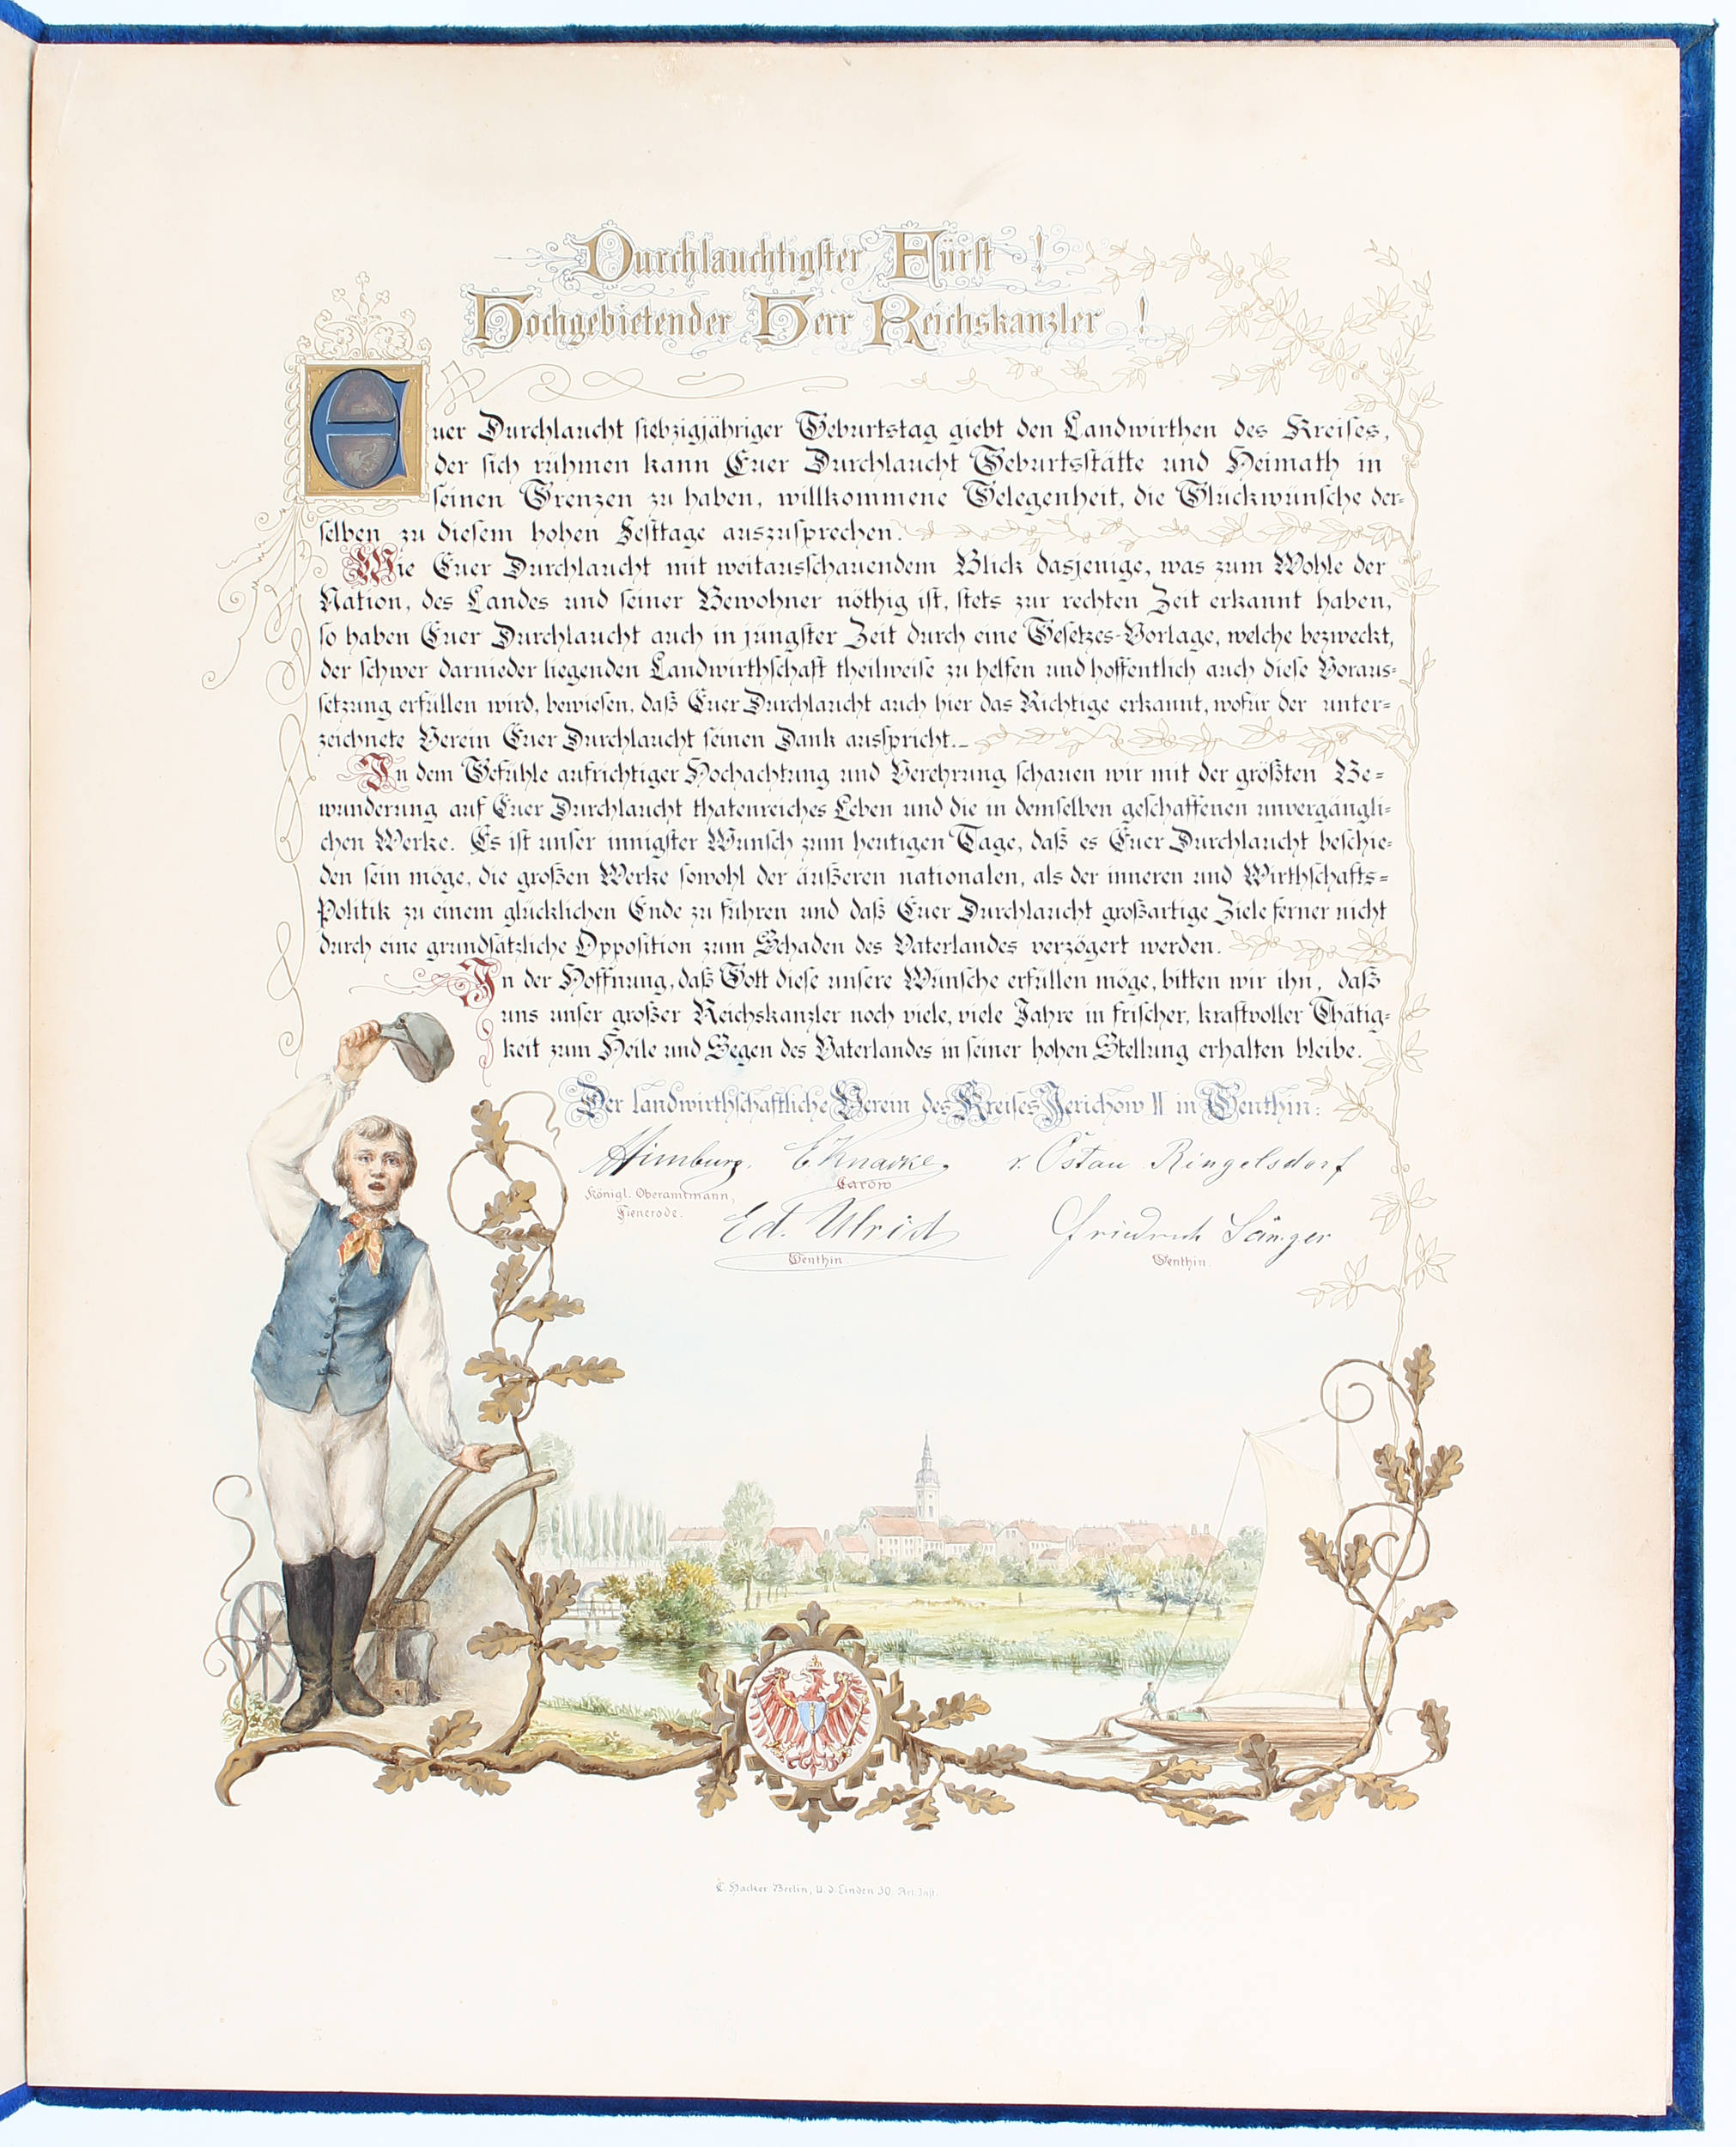 Durchlauchtigster Fürst !
Hochgebietender Herr Reichskanzler !
Euer Durchlaucht siebzigjähriger Geburtstag giebt den Landwirthen des Kreises,
der sich rühmen kann Euer Durchlaucht Geburtsstätte und Heimath in
seinen Grenzen zu haben, willkommene Gelegenheit, die Glückwünsche der-
selben zu diesem hohen Festtage auszusprechen.
Wie Euer Durchlaucht mit weitausschauendem Blick dasjenige, was zum Wohle der
Nation, des Landes und seiner Bewohner nöthig ist, stets zur rechten Zeit erkannt haben,
so haben Euer Durchlaucht auch in jüngster Zeit durch eine Gesetzes-Vorlage, welche bezweckt,
der schwer darnieder liegenden Landwirthschaft theilweise zu helfen und hoffentlich auch diese Voraus-
setzung erfüllen wird, bewiesen, daß Euer Durchlaucht auch hier das Richtige erkannt, wofür der unter-
zeichnete Verein Euer Durchlaucht seinen Dank ausspricht.
In dem Gefühle aufrichtiger Hochachtung und Verehrung schauen wir mit der größten Be-
wunderung auf Euer Durchlaucht thatenreiches Leben und die in demselben geschaffenen unvergängli-
chen Werke. Es ist unser innigster Wunsch zum heutigen Tage, daß es Euer Durchlaucht beschie-
den sein möge, die großen Werke sowohl der äußeren nationalen, als der inneren und Wirthschafts-
Politik zu einem glücklichen Ende zu führen und daß Euer Durchlaucht großartige Ziele ferner nicht
durch eine grundsätzliche Opposition zum Schaden des Vaterlandes verzögert werden.
In der Hoffnung, daß Gott diese unsere Wünsche erfüllen möge, bitten wir ihn, daß
uns unser großer Reichskanzler noch viele, viele Jahre in frischer, kraftvoller Thätig-
keit zum Heile und Segen des Vaterlandes in seiner hohen Stellung erhalten bleibe.
Der landwirthschaftliche Verein des Kreises Jerichow II in Genthin:
Himburg. E Knacke. v. Ostau Ringelsdorf
Königl. Oberamtmann, Carow
Fienerode.
Ed. Ulrich Friedrich Sänger
Genthin. Genthin.
C. Hacker Berlin, U. d. Linden 30 Art. Inst.